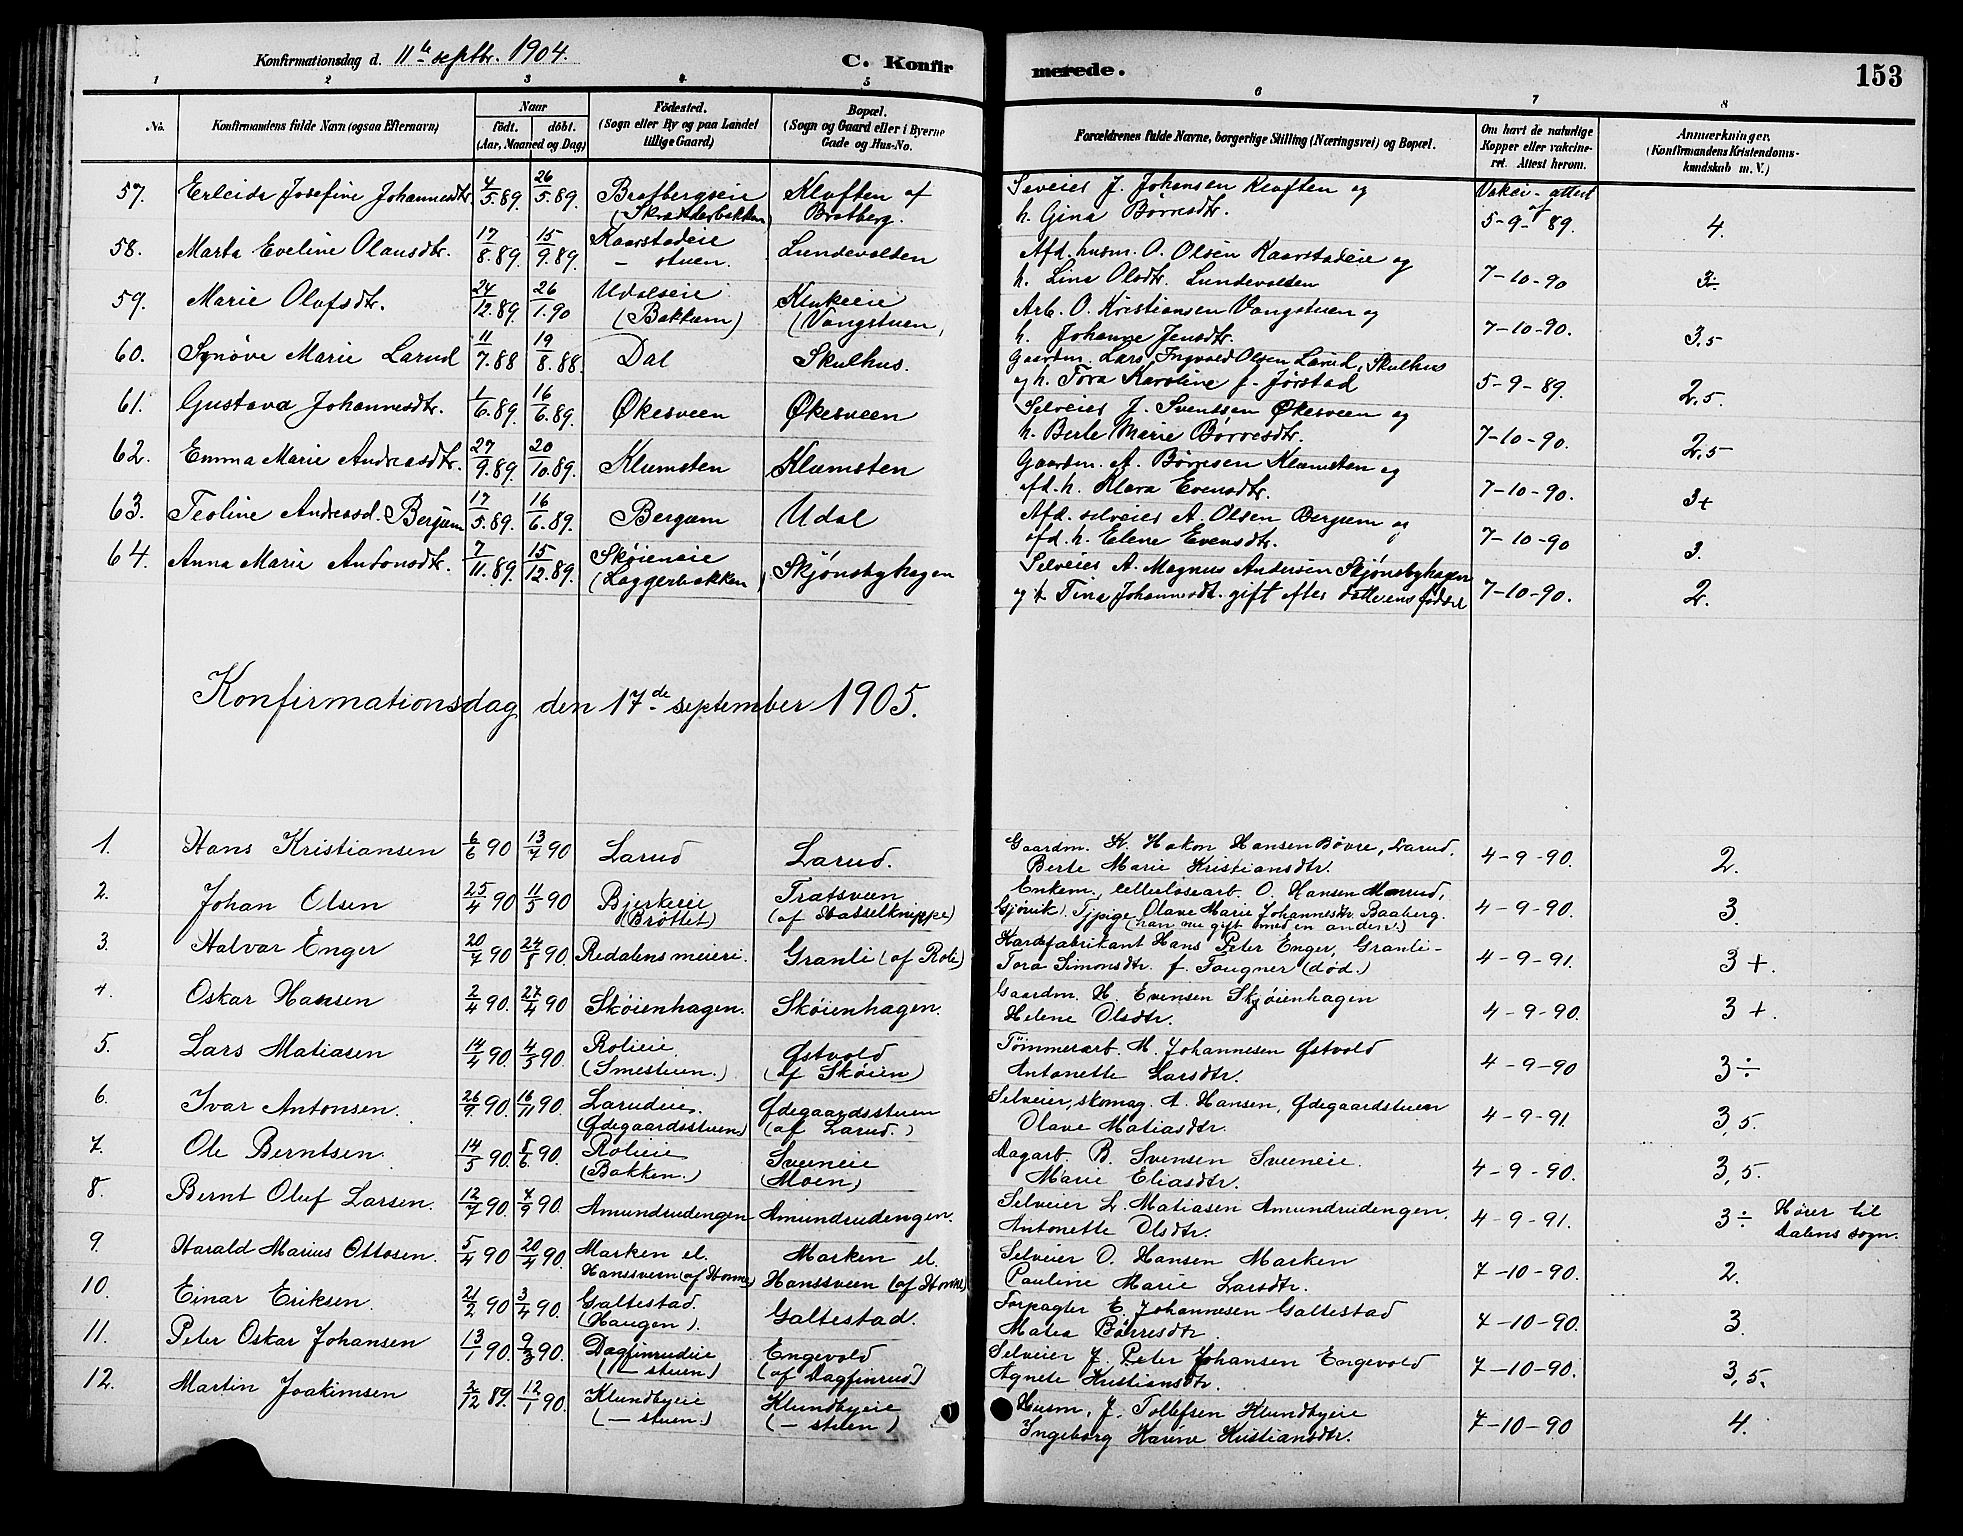 Konfirmationsdag d. 11te septbr. 1904.
C. Konfirmerede.
153
1 2 3 4 5 6 7 8
No. Konfirmandens fulde Navn (ogsaa Efternavn)
Naar
födt. döbt.
(Aar, Maaned og Dag)
Födested.
(Sogn eller By og paa Landet
tillige Gaard)
Bopæl.
(Sogn og Gaard eller i Byerne
Gade og Hus-No.
Forældrenes fulde Navne, borgerlige Stilling (Næringsvei) og Bopæl.
Om havt de naturlige
Kopper eller vakcine-
ret. Attest herom.
Anmærkninger.
(Konfirmandens Kristendoms-
kundskab m. V.)
57. Erleida Josefine Johannesdtr. 4/5.89. 26/5.89. Bratbergseie Kløften af Selveier J. Johansen Kløften og Vakci- attest
(Skrædderbakken) Bratberg. h. Gina Børresdtr. af 5-9-89. 4.
58. Marta Eveline Olausdtr. 17/8.89. 15/9.89. Kaarstadeie Lundevolden Afd. husm. O. Olsen Kaarstadeie og
– stuen. h. Lina Olsdtr. Lundevolden 7-10-90 3÷
59. Marie Olafsdtr. 24/12.89. 26/1.90 Udalseie Klukeeie Arb. O. Kristiansen Vangstuen og
(Bakkem) (Vangstuen) h. Johanne Jensdtr. 7-10-90. 3,5
60. Synøve Marie Larud 11/7.88 19/8.88. Dal Skulhus. Gaardm. Lars Ingvald Olsen Larud, Skulhus
og h. Tora Karoline f. Jørstad 5-9-89. 2,5.
61. Gustava Johannesdtr. 1/6.89. 16/6.89. Økesveen Økesveen Selveier J. Svendsen Økesveen og
h. Berte Marie Børresdtr. 7-10-90. 2,5
62. Emma Marie Andreasdtr. 27/9.89. 20/10.89. Klumsten Klæmsten Gaardm. A. Børresen Klæmsten og
afd. h. Klara Evensdtr. 7-10-90. 3+
63. Teoline Andreasd. Bergum 17/5.89. 16/6.89. Bergum Udal Afd. selveier A. Olsen Bergum og
afd. h. Elene Evensdtr. 7-10-90 3.
64. Anna Marie Antonsdtr. 7/11.89. 15/12.89. Skøieneie Skjønsbyhagen Selveier A. Magnus Andersen Skjønsbyhagen
(Laggerbakken) og h. Tina Johannesdt. gift efter datterens fødsel 7-10-90. 2.
Konfirmationsdag den 17de september 1905.
1. Hans Kristiansen 6/6 90 13/7 90 Larud Larud. Gaardm. K. Hakon Hansen Bøvre, Larud.
Berte Marie Kristiansdtr. 4-9-90. 2.
2. Johan Olsen 25/4 90 11/5 90 Bjerkeie Trætsveen Enkem., cellulosearb. O. Hansen Mærud,
(Brøttet) (af Hasselknippe) (Gjøvik). Tjpige Olave Marie Johannesdtr. Baaberg. 4-9-90. 3.
(han nu gift med en anden.)
3. Halvar Enger 20/7 90 24/8 90. Redalens meieri. Granli (af Role) Kardefabrikant Hans Peter Enger, Granli-
Tora Simonsdtr. f. Fougner (død.) 4-9-91. 3+.
4. Oskar Hansen 2/4 90. 27/4 90 Skøienhagen. Skøienhagen. Gaardm. H. Evensen Skøienhagen
Helene Olsdtr. 4-9-90. 3+.
5. Lars Matiasen 14/4 90. 4/5 90. Rolieie Østvold Tømmerarb. M. Johannesen Østvold
(Smestuen.) (af Skøien) Antonette Larsdtr. 4-9-90 3÷
6. Ivar Antonsen. 26/9 90. 16/11 90. Larudeie. Ødegaardsstuen Selveier, skomag. A. Hansen, Ødegaardstuen
(Ødegaardsstuen.) (af Larud.) Olave Matiasdtr. 4-9-91. 3,5.
7. Ole Berntsen. 14/5 90. 5/6 90. Rolieie Sveeneie Dagarb. B. Svensen Sveeneie.
(Bakken.) (Moen) Marie Eliasdtr. 4-9-90. 3,5.
8. Bernt Oluf Larsen. 12/7 90. 7/9 90. Amundrudengen Amundrudengen. Selveier L. Matiasen Amundrudengen.
Antonette Olsdtr. 4-9-91. 3÷ Hører til
Dalens sogn.
9. Harald Marius Ottosen. 5/4 90 20/4 90. Marken el. Marken el. Selveier O. Hansen Marken
Hanssveen (af Honne) Hanssveen (af Honne) Pauline Marie Larsdtr. 7-10-90. 2.
10. Einar Eriksen. 21/2 90 3/4 90. Galtestad. Galtestad. Forpagter E. Johannesen Galtestad
(Haugen). Matea Børresdtr. 7-10-90. 3.
11. Peter Oskar Johansen 13/1 90. 9/3 90. Dagfinrudeie Engevold Selveier J. Peter Johansen Engevold
(– stuen) (af Dagfinrud) Agnete Kristiansdtr. 7-10-90. 3,5.
12. Martin Joakimsen 2/12 89. 12/1 90. Klundbyeie Klundbyeie Husm. J. Tollefsen Klundbyeie
(– stuen.) (– stuen) Ingeborg Karine Kristiansdtr. 7-10-90 4.